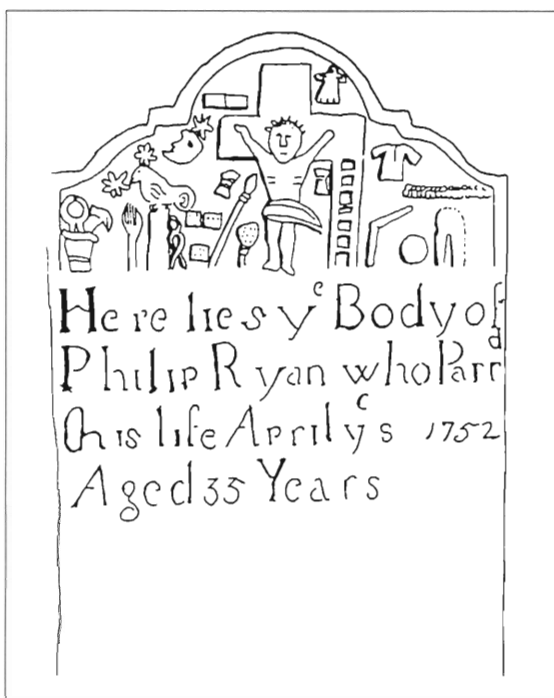 Here lies yᵉ Body of
Philip Ryan who Parrᵈ
this life April yᵉ 5 1752
Aged 35 Years